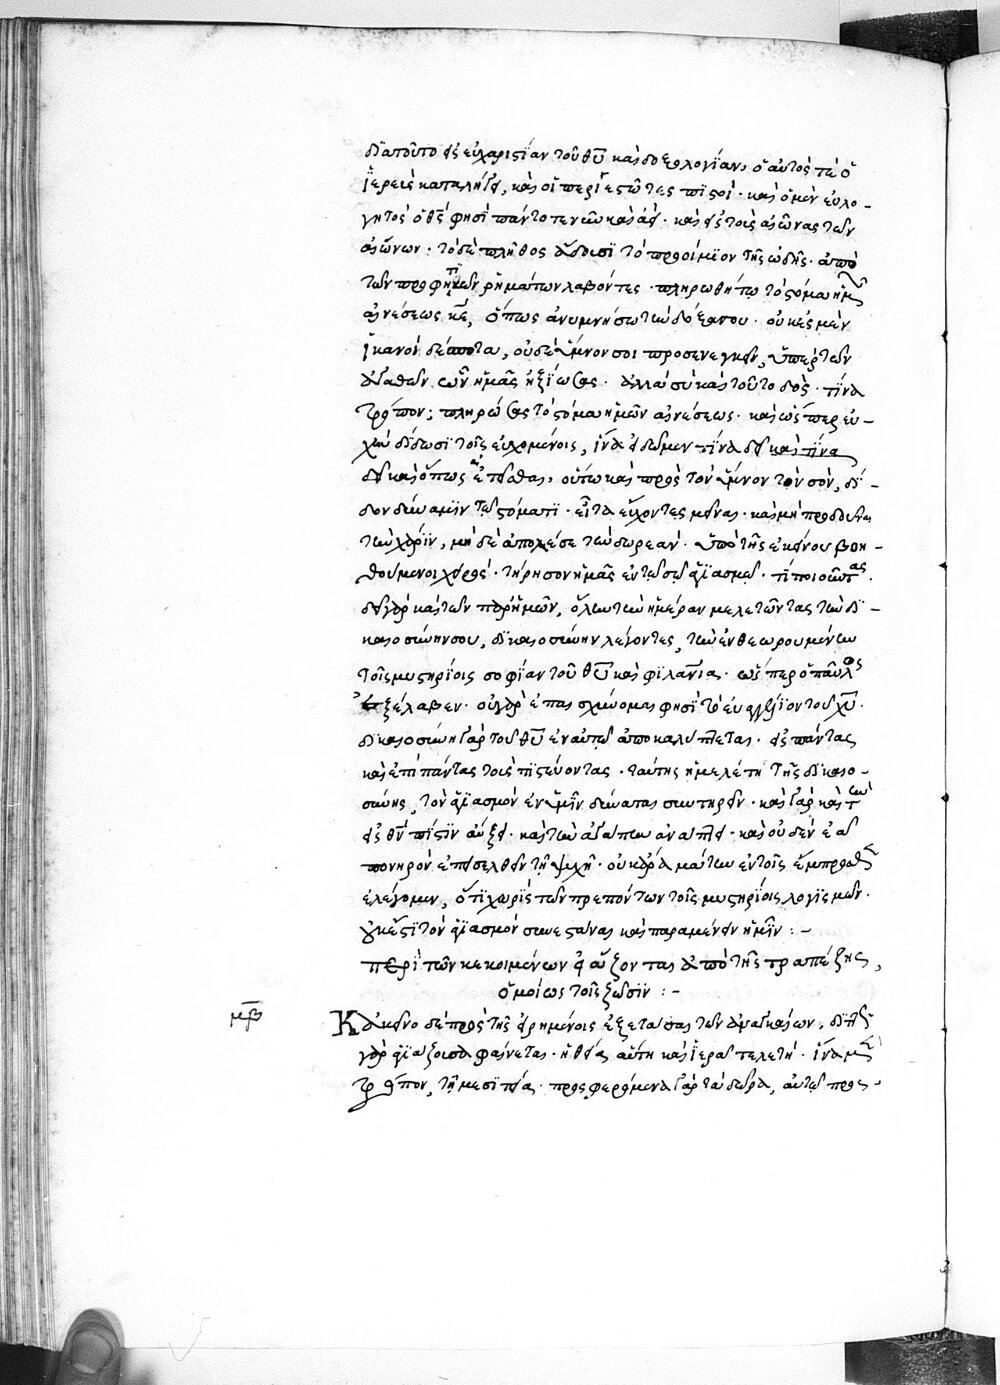 διατοῦτο εἰς εὐχαριστίαν τοῦ θῦ καὶ δοξολογίαν, ὅ, αὐτὸς τὲ ὁ
ἱερεὺς καταλήγει, καὶ οἱ περιεστῶτες πιστοί· καὶ ὁ μὲν εὐλο-
γητὸς ὁ θς φησὶ πάντοτε νῦν καὶ ἀεὶ· καὶ εἰς τοὺς αἰῶνας τῶν
αἰώνων· τὸ δὲ πλῆθος ἄδουσι τὸ προοίμιον τῆς ὠδῆς· ἀπὸ
τῶν προφητικῶν ῥημάτων λαβόντες· πληρωθήτω τὸ στόμα ἡμῶν
αἰνέσεως κε, ὅπως ἀνυμνήσω τὴν δόξαν σου· οὐκ ἐσμὲν
ἱκανοὶ δέσποτα, οὐδὲ ὕμνον σοι προσενεγκεῖν, ὑπὲρ τῶν
ἀγαθῶν ὧν ἡμᾶς ἠξίωσας· ἀλλὰ σὺ καὶ τοῦτο δὸς· τίνα
τρόπον; πληρώσας τὸ στόμα ἡμῶν αἰνέσεως· καὶ ὥσπερ εὐ-
χὴν δίδωσι τοῖς εὐχομένοις, ἵνα εἰδῶμεν τίνα δεῖ καὶ τίνα
δεῖ καὶ ὅπως αἰτεῖσθαι, οὕτω καὶ πρὸς τὸν ὕμνον τὸν σὸν, δί-
δου δύναμιν τῷ στόματι· εἶτα εὔχονται μεῖναι καὶ μὴ προδοῦναι
τὴν χάριν, μὴ δὲ ἀπολέσαι τὴν δωρεὰν· ὑπὸ τῆς ἐκείνου βοη-
θούμενοι χειρὸς· τήρησον ἡμᾶς ἐν τῷ σῷ ἁγιασμῷ· τί ποιοῦντας·
δεῖ γὰρ καὶ τῶν παρ' ἡμῶν, ὅλην τὴν ἡμέραν μελετῶντας τὴν δι-
καιοσύνην σου, δικαιοσύνην λέγοντες, τὴν ἐνθεωρουμένην
τοῖς μυστηρίοις σοφίαν τοῦ θῦ καὶ φιλανίαν· ὥσπερ ὁ παῦλος
ἐξέλαβεν· οὐ γὰρ ἐπαισχύνομαι φησὶ τὸ εὐαγγέλιον τοῦ χῦ·
δικαιοσύνη γὰρ τοῦ θῦ ἐν αὐτῷ ἀποκαλύπτεται· εἰς πάντας
καὶ ἐπὶ πάντας τοὺς πιστεύοντας· ταύτης ἡ μελέτη τῆς δικαιο-
σύνης, τὸν ἁγιασμὸν ἐν ἡμῖν δύναται συντηρεῖν· καὶ γὰρ καὶ τὴν
εἰς θν πίστιν αὔξει· καὶ τὴν ἀγάπην ἀνάπτει· καὶ οὐδὲν ἐᾷ
πονηρὸν ἐπεισελθεῖν τῇ ψυχῇ· οὐκ ἄρα μάτην ἐν τοῖς ἔμπροσθεν
ἐλέγομεν, ὅτι χωρὶς τῶν πρεπόντων τοῖς μυστηρίοις λογισμῶν·
οὐκ ἔστι τὸν ἁγιασμὸν συνεστάναι καὶ παραμένειν ἡμῖν :-
περὶ τῶν κεκοιμένων εἰ αὔξονται ἀπὸ τῆς τραπέζης,
ὁμοίως τοῖς ζῶσιν :-
μβ
Κἀκεῖνο δὲ πρὸς τοῖς εἰρημένοις ἐξετάσαι τῶν ἀναγκαίων, διπλῶς
γὰρ ἁγιάζουσα φαίνεται· ἡ θεία αὕτη καὶ ἱερὰ τελετὴ· ἕνα μὲν
τρόπον, τῇ μεσιτεία· προσφερόμενα γὰρ τὰ δῶρα, αὐτῷ προς-